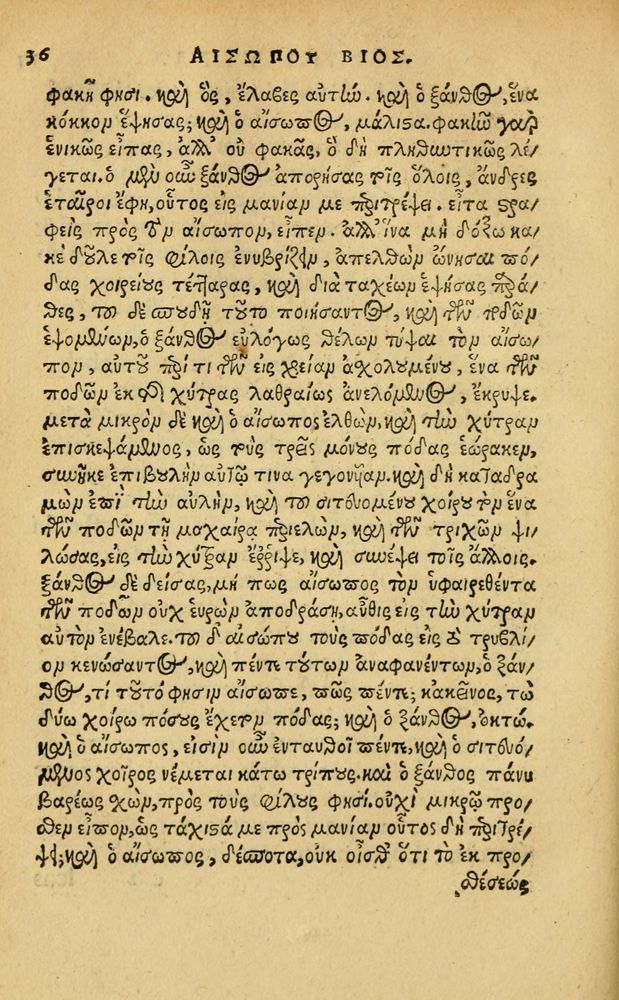 36 ΑΙΣΩΠΟΥ ΒΙΟΣ.
φακῆ φησι. καὶ ὃς, ἔλαβες αὐτίω. καὶ ὁ ξάνθος, ἕνα
κόκκον ἕψησας; καὶ ὁ αἴσωπος, μάλιστα. φακίω γὰρ
ἑνικῶς εἶπας, ἀλλ' οὐ φακᾶς, ὃ δὴ πληθωτικῶς λέ/
γεται. ὁ μὲν οὖν ξάνθος ἀπορήσας τοῖς ὅλοις, ἄνδρες
ἑταῖροι ἔφη, οὗτος εἰς μανίαν με περιτρέψει. εἶτα στρα/
φεὶς πρὸς τὸν αἴσωπον, εἶπεν. ἀλλ' ἵνα μὴ δόξω κα/
κὲ δοῦλε τοῖς φίλοις ἐνυβρίζειν, ἀπελθὼν ὤνησαι πό/
δας χοιρείους τέτταρας, καὶ διὰ ταχέων ἑψήσας παρά/
θες, τοῦ δὲ σπουδῇ τοῦτο ποιήσαντος, καὶ τῶν ποδῶν
ἑψομένων, ὁ ξάνθος εὐλόγως θέλων τύψαι τὸν αἴσω/
πον, αὐτοῦ περί τι τῶν εἰς χρείαν ἀσχολουμένου, ἕνα τῶν
ποδῶν ἐκ τῆς χύτρας λαθραίως ἀνελόμενος, ἔκρυψε.
μετὰ μικρὸν δὲ καὶ ὁ αἴσωπος ἐλθὼν, καὶ τίω χύτραν
ἐπισκεψάμενος, ὡς τοὺς τρεῖς μόνους πόδας ἑώρακεν,
συνῆκε ἐπιβουλήν αὐτῷ τινα γεγονῆαν. καὶ δὴ καταδρα
μὼν ἐπὶ τίω αὐλὴν, καὶ τοῦ σιτευομένου χοίρου τὸν ἕνα
τῶν ποδῶν τῇ μαχαίρᾳ περιελὼν, καὶ τῶν τριχῶν ψι/
λώσας, εἰς τίω χύτραν ἔρριψε, καὶ συνέψει τοῖς ἄλλοις.
ξάνθος δὲ δείσας, μή πως αἴσωπος τὸν ὑφαιρεθέντα
τῶν ποδῶν οὐχ εὑρὼν ἀποδράσῃ, αὖθις εἰς τίω χύτραν
αὐτὸν ἐνέβαλε. τοῦ δ' αἰσώπου τοὺς πόδας εἰς τὸ τρυβλί/
ον κενώσαντος, καὶ πέντε τούτων ἀναφανέντων, ὁ ξάν/
θος, τί τοῦτό φησιν αἴσωπε, πῶς πέντε; κἀκεῖνος, τὼ
δύω χοίρω πόσους ἔχετον πόδας; καὶ ὁ ξάνθος, ὀκτώ.
καὶ ὁ αἴσωπος, εἰσὶν οὖν ἐνταυθοῖ πέντε, καὶ ὁ σιτευό/
μενος χοῖρος νέμεται κάτω τρίπους. καὶ ὁ ξάνθος πάνυ
βαρέως σχὼν, πρὸς τοὺς φίλους φησί. οὐχὶ μικρῷ πρό/
σθεν εἶπον, ὡς τάχιστά με πρὸς μανίαν οὗτος δὴ περιτρέ/
ψει; καὶ ὁ αἴσωπος, δέσποτα, οὐκ οἶσθ' ὅτι τὸ ἐκ προ/
σθέσεώς